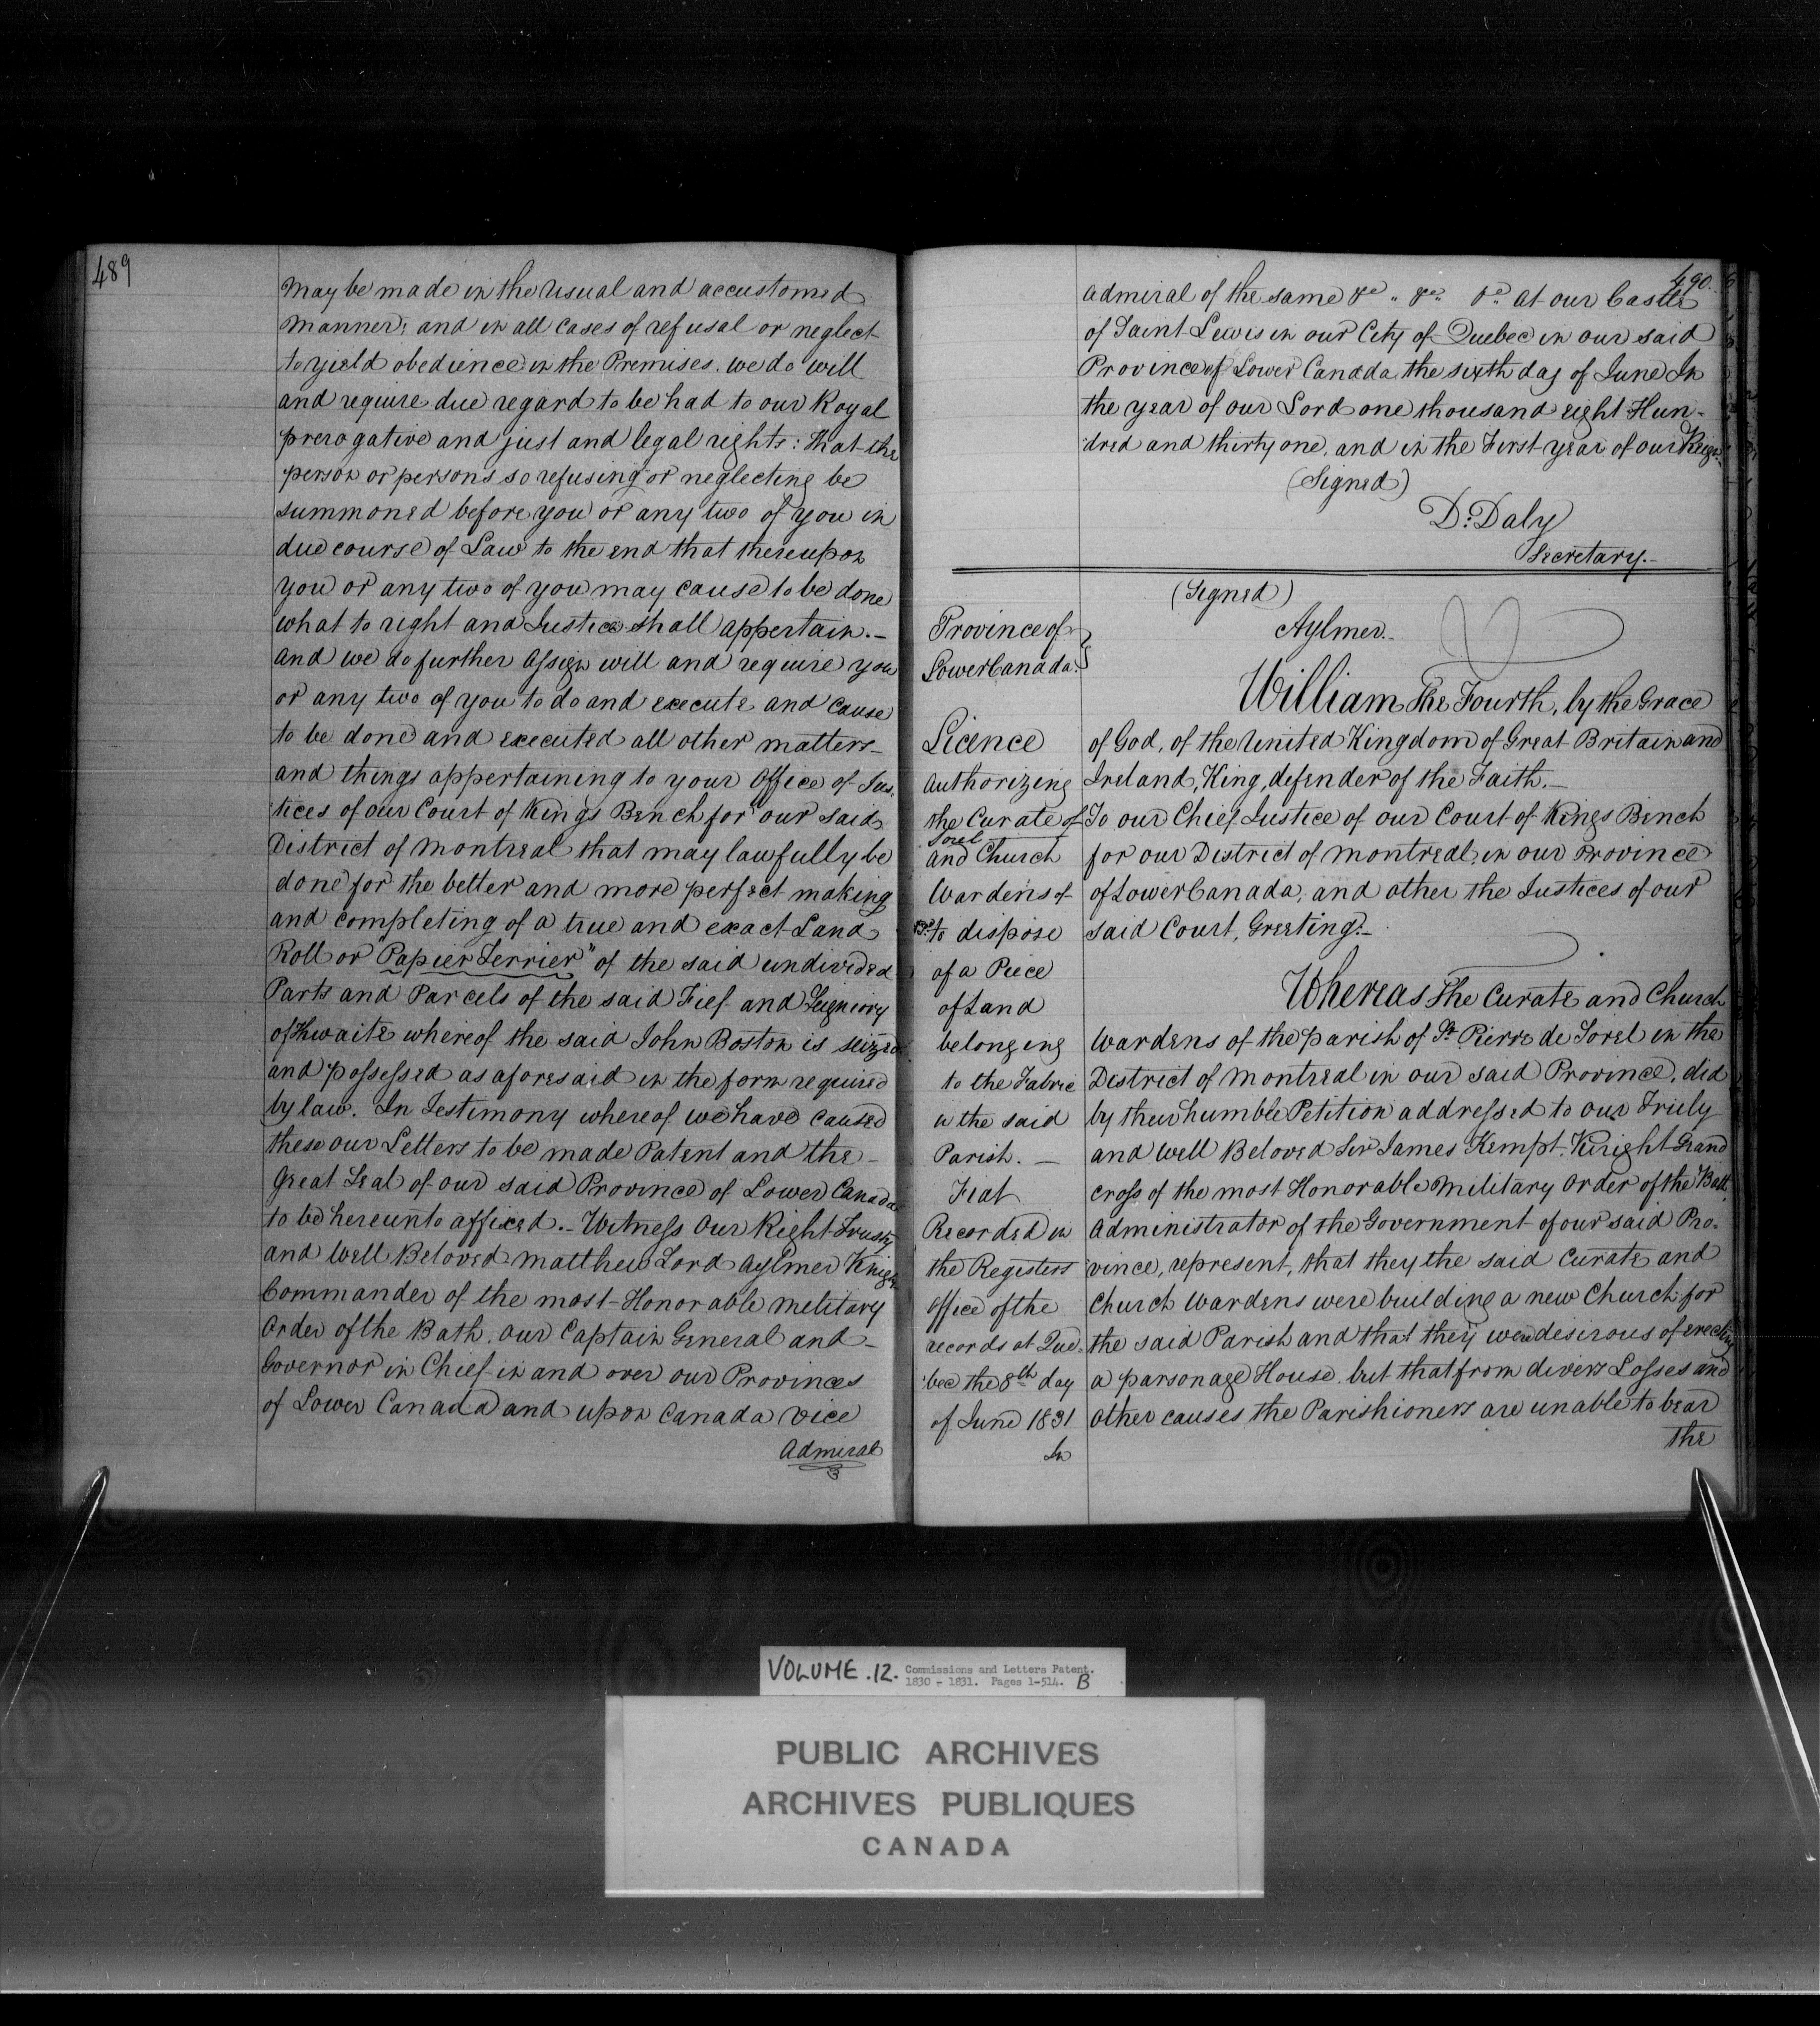 489
may be made in the usual and accustomed
manner; and in all cases of refusal or neglect
to yield obedience in the Premises. we do will
and require due regard to be had to our Royal
prerogative and just and legal rights: that the
person or persons so refusing or neglecting be
summoned before you or any two of you in
due course of Law to the end that thereupon
you or any two of you may cause to be done
what to right and Justice shall appertain.—
and we do further Assign will and require you
or any two of you to do and execute and cause
to be done and executed all other matters—
and things appertaining to your Office of Jus-
tices of our Court of Kings Bench for our said
District of Montreal that may lawfully be
done for the better and more perfect making
and completing of a true and exact Land
Roll or "Papier Terrier" of the said undivided
Parts and Parcels of the said Fief and Seigniory
of Thwaite whereof the said John Boston is seized
and possessed as aforesaid in the form required
by law. In Testimony whereof we have caused
these our Letters to be made Patent and the—
Great Seal of our said Province of Lower Canada
to be hereunto affixed.— Witness Our Right Trusty
and Well Beloved Matthew Lord Aylmer Knight
Commander of the most Honorable Military
Order of the Bath. our Captain General and—
Governor in Chief in and over our Provinces
of Lower Canada and upon Canada Vice
Admiral
490.
Admiral of the same &c. &c. &c. at our Castle
of Saint Lewis in our City of Quebec in our said
Province of Lower Canada the sixth day of June In
the year of our Lord one thousand eight Hun-
dred and thirty one, and in the First year of our Reign.
(Signed)
D. Daly
Secretary.—
(Signed)
Aylmer.
Province of
Lower Canada.
William The Fourth, by the Grace
of God, of the United Kingdom of Great Britain and
Ireland, King, defender of the Faith.—
To our Chief Justice of our Court of Kings Bench
for our District of Montreal, in our Province
of Lower Canada, and other the Justices of our
said Court, Greeting.—
Licence
Authorizing
the Curate of
Sorel
and Church
Wardens of
do to dispose
of a Piece
of Land
belonging
to the Fabric
in the said
Parish.—
Fiat
Recorded in
the Registers
Office of the
records at Que-
bec the 8th day
of June 1831
In
Whereas The Curate and Church
Wardens of the parish of St. Pierre de Sorel in the
District of Montreal in our said Province, did
by their humble Petition addressed to our Truly
and Well Beloved Sir James Kempt. Knight Grand
Cross of the most Honorable Military Order of the Bath.
Administrator of the Government of our said Pro-
vince, represent, that they the said Curate and
Church Wardens were building a new Church for
the said Parish and that they were desirous of erecting
a parsonage House. but that from divers Losses and
other causes the Parishioners are unable to bear
the
VOLUME .12. Commissions and Letters Patent.
1830 - 1831. Pages 1-514. B
PUBLIC ARCHIVES
ARCHIVES PUBLIQUES
CANADA